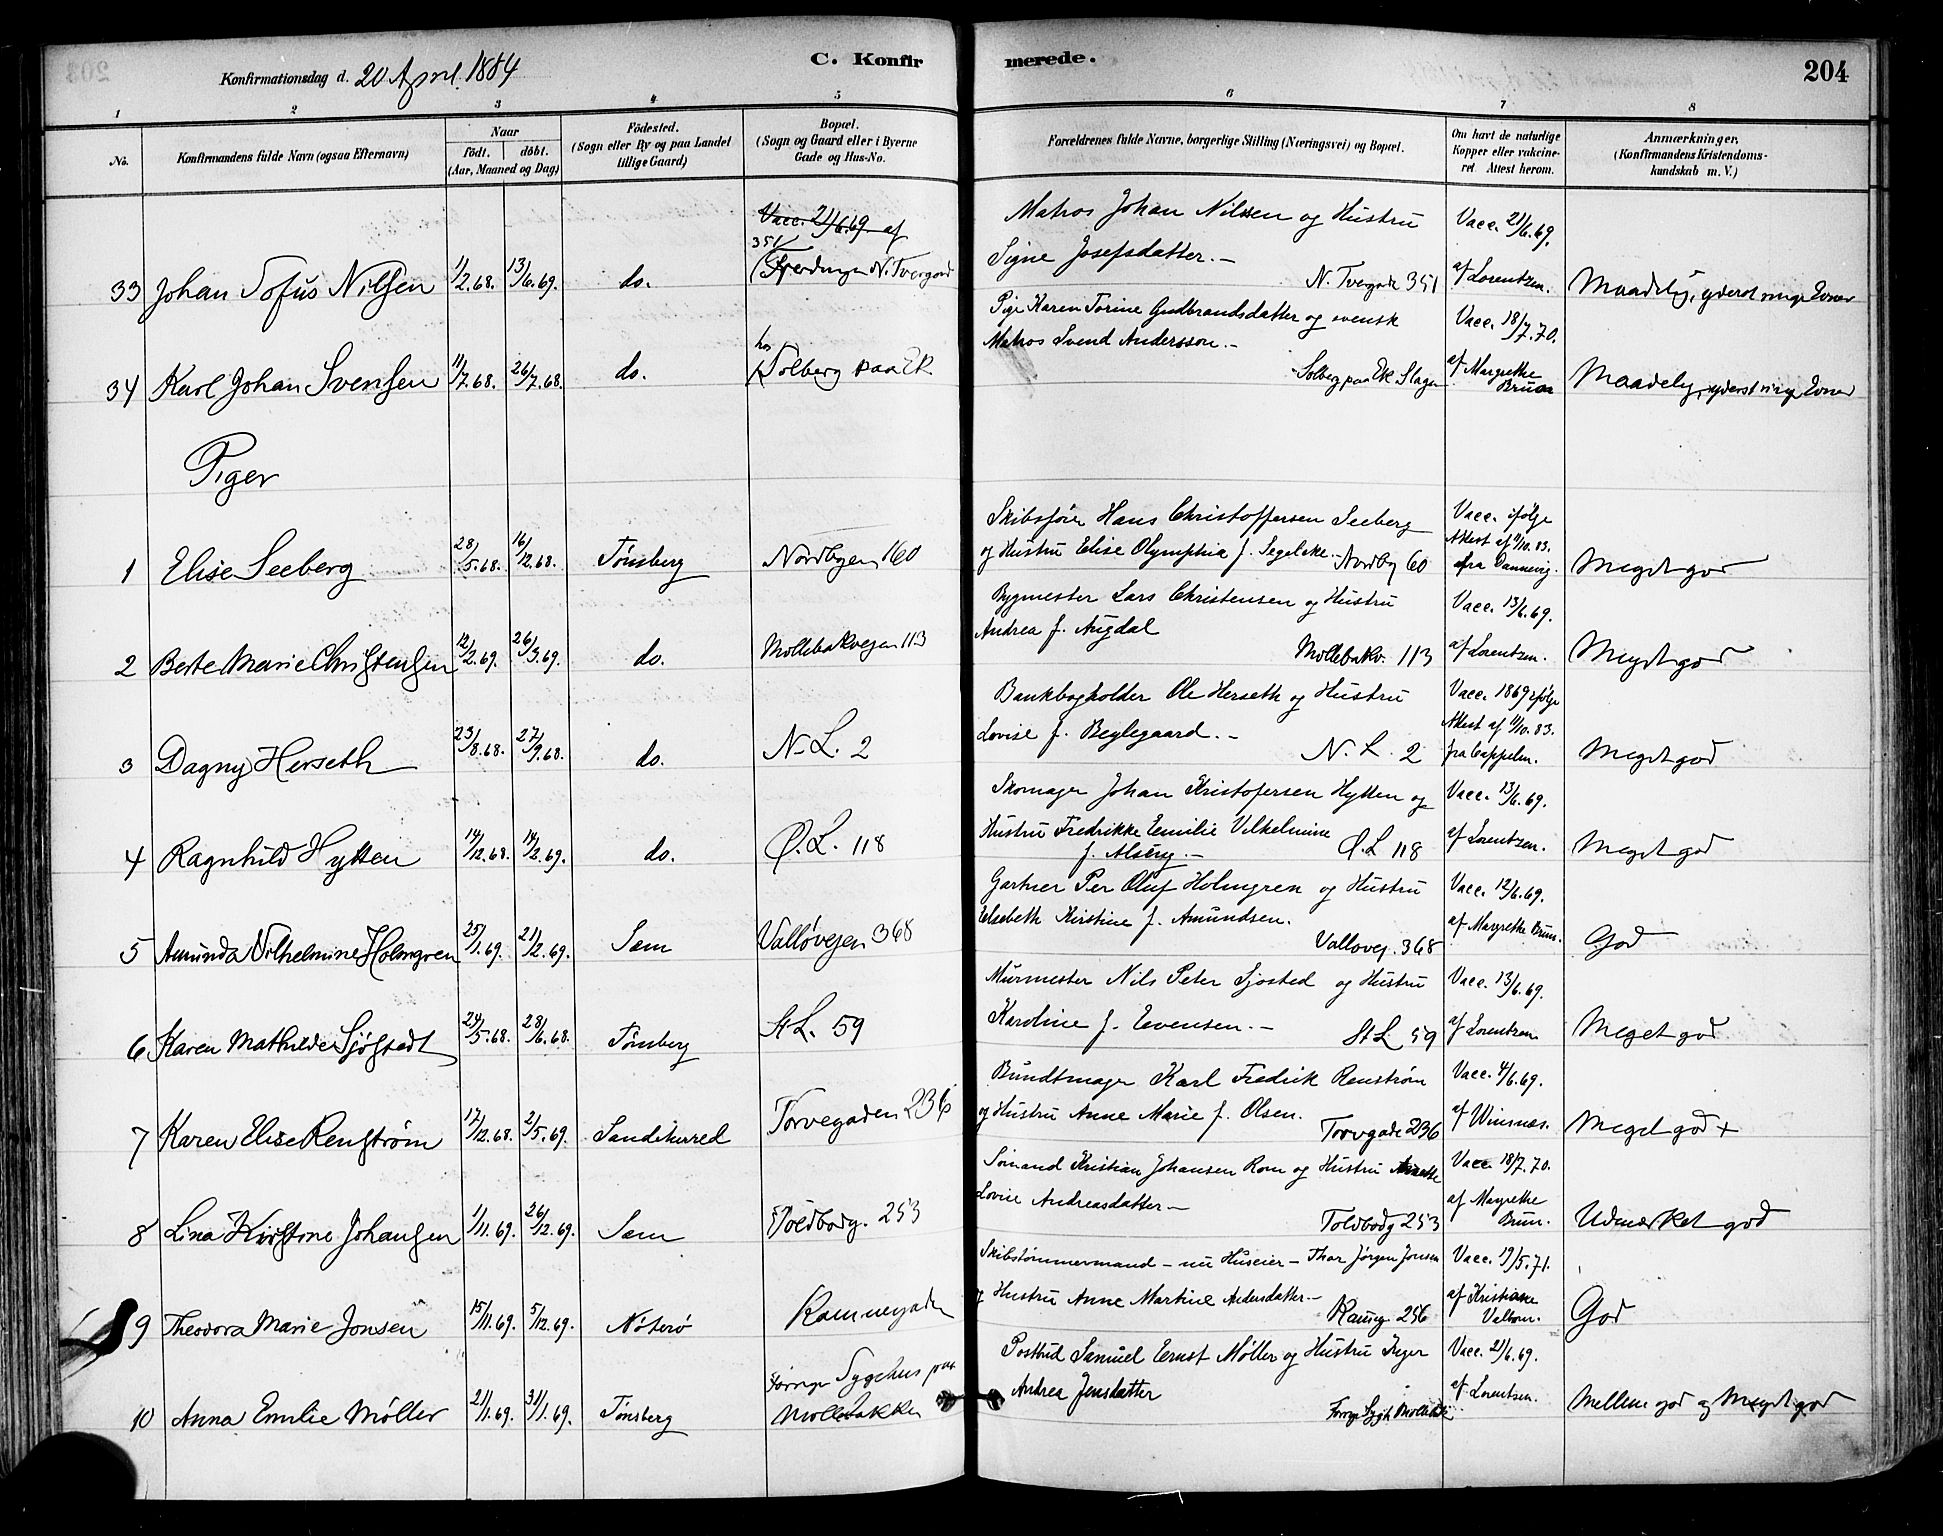 C. Konfirmerede.
204
Konfirmationsdag d. 20 April 1884
1 2 3 4 5 6 7 8
No.
Konfirmandens fulde Navn (ogsaa Efternavn)
Naar
födt. döbt.
(Aar, Maaned og Dag)
Födested.
(Sogn eller By og paa Landet
tillige Gaard)
Bopæl.
(Sogn og Gaard eller i Byerne
Gade og Hus-No.
Forældrenes fulde Navne, borgerlige Stilling (Næringsvei) og Bopæl.
Om havt de naturlige
Kopper eller vakcine-
ret Attest herom.
Anmærkninger,
(Konfirmandens Kristendoms-
kundskab m. V.)
Vacc. 21/6.69 af
351
N. Tvergard
33 Johan Sofus Nilsen 11/2.68. 13/6.69. do.
Matros Johan Nilssen og Hustru
Signe Josefsdatter. –
N. Tvergade 351
Vacc. 21/6.69.
af Lorentzen.
Maadelig, yderst ringe Evner
34 Karl Johan Svensen 11/7.68. 26/7.68. do. hos Solberg paa Ek
Pige Karen Torine Gudbrandsdatter og svensk
Matros Svend Andersson. –
Solberg paa Ek Slagen
Vacc. 18/7.70.
af Margrethe
Bruun
Maadelig, yderst ringe Evner
Piger
1 Elise Seeberg 28/5.68. 16/12.68. Tønsberg Nordbyen 160
Skibsfører Hans Christoffersen Seeberg
og Hustru Elise Olymphia f. Segelcke. Nordby 60
Vacc. ifølge
Attest af 11/10.83.
fra Dannevig.
Meget god
2 Berte Marie Christensen 12/2.69. 26/3.69. do. Møllebakveien 113
Bygmester Lars Christensen og Hustru
Andrea f. Augdal
Møllebakv. 113
Vacc. 13/6.69.
af Lorentzen.
Meget god
3 Dagny Herseth 23/8.68. 27/9.68. do. N.L. 2
Bankbogholder Ole Herseth og Hustru
Lovise f. Beylegaard. –
N. L. 2
Vacc. 1869 ifølge
Attest af 11/10.83.
fra Cappelen.
Meget god
4 Ragnhild Hytten 14/12.68. 14/2.69. do. Ø.L. 118
Skomager Johan Kristofersen Hytten og
Hustru Fredrikke Emilie Vilhelmine
f. Alsing. –
Ø.L 118
Vacc. 13/6.69.
af Lorentzen.
Meget god
5 Amunda Vilhelmine Holmgren 25/1.69. 21/2.69. Sem Valløveien 368
Gartner Per Oluf Holmgren og Hustru
Elsebeth Kirstine f. Amundsen.
Vallovej. 368
Vacc. 12/6.69.
af Margrethe Brun.
God
6 Karen Mathilde Sjöstedt 24/5.68. 28/6.68. Tønsberg St L. 59
Murmester Nils Peter Sjøsted og Hustru
Karoline f. Evensen. –
St L 59
Vacc. 13/6.69.
af Lorentzen
Meget god
7 Karen Elise Renström 17/12.68. 2/5.69. Sandeherred Torvegaden 236
Bundtmager Karl Fredrik Renstrøm
og Hustru Anne Marie f. Olsen.
Torvgade 236
Vacc. 4/6.69.
af Winsnæs.
Meget god +
8 Lina Kirstine Johansen 1/11.69. 26/12.69. Sem Toldbodg. 253
Sømand Kristian Johansen Rom og Hustru Anette
Lovise Andreasdatter –
Toldbodg 253
Vacc 18/7.70.
af Margrethe
Brun.
Udmærket god
9 Theodora Marie Jonsen 15/11.69. 5/12.69. Nøterø
Skibstømmermand – nu Huseier – Thor Jørgen Jonsen
og Hustru Anne Martine Andersdatter –
256
Vacc. 19/5.71.
af Kristiane
God
10 Anna Emilie Møller 21/11.69. 31/1.69. Tønsberg
Forrige Sygehus paa
Møllebakken
Postbud Samuel Ernst Møller og Hustru Inger
Andrea Jensdatter
Vacc. 21/6.69.
af Lorentzen.
Mellem god og Meget god